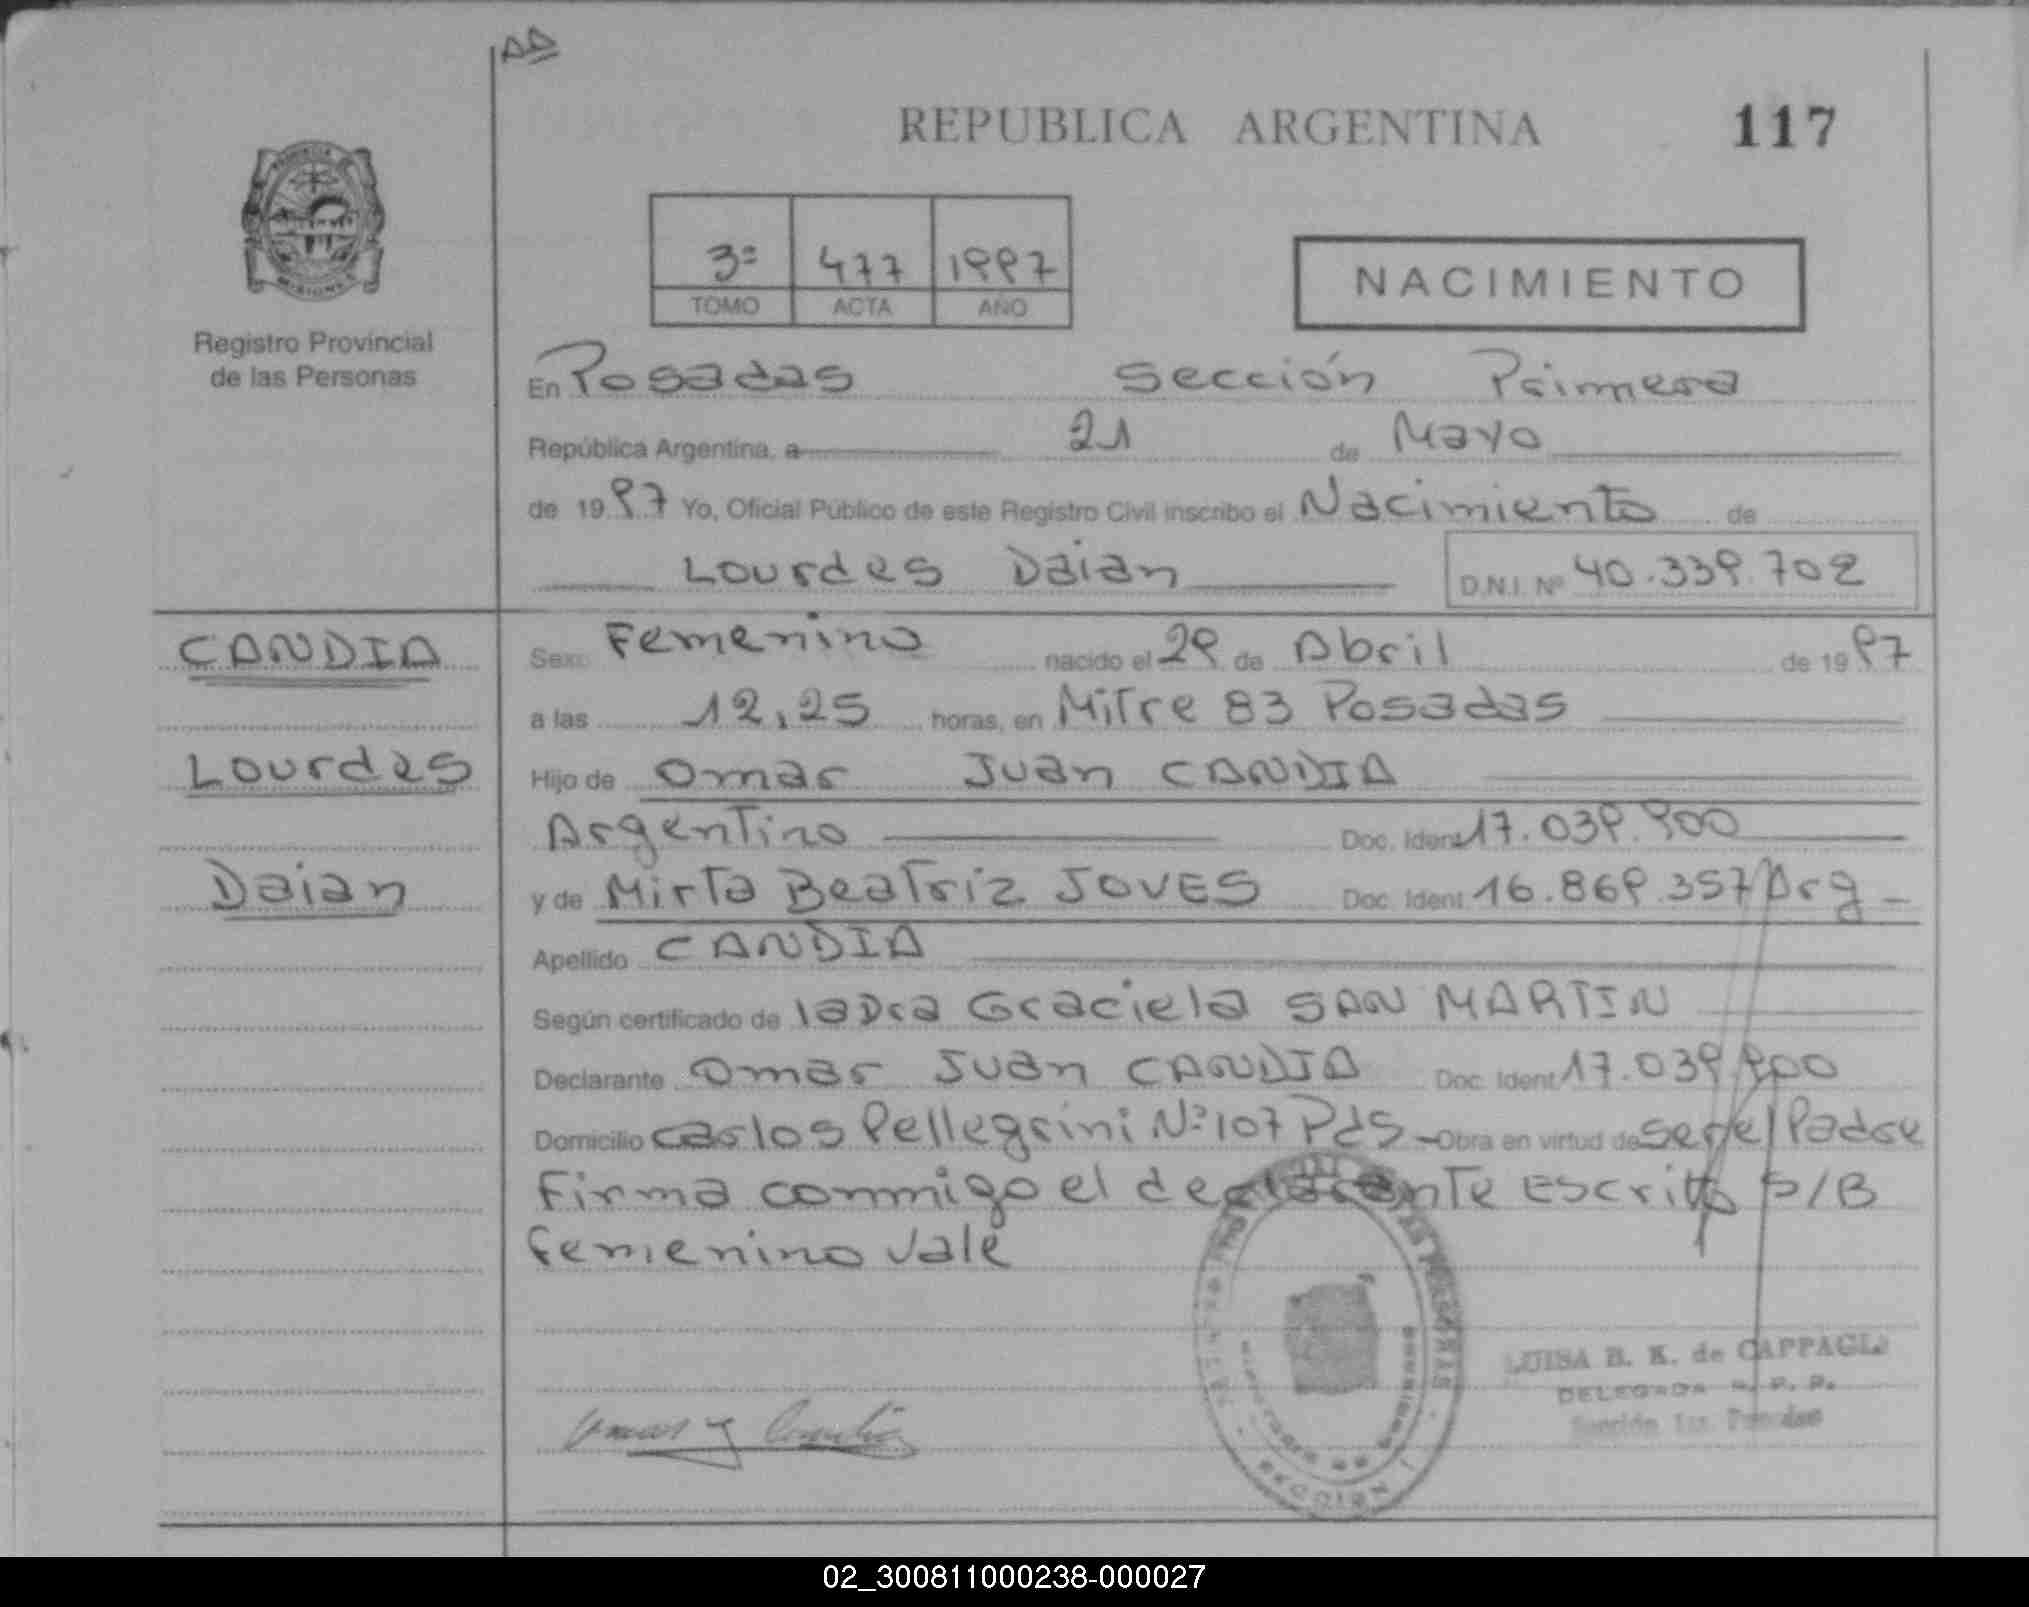 AD
REPUBLICA ARGENTINA 117
3º 477 1997
TOMO ACTA AÑO
NACIMIENTO
Registro Provincial
de las Personas
En Posadas Sección Primera
República Argentina, a 21 de Mayo
de 1997 Yo, Oficial Público de este Registro Civil inscribo el Nacimiento de
Lourdes Daian D.N.I. Nº 40.339.702
CANDIA
Lourdes
Daian
Sexo Femenino nacido el 29 de Abril de 1997
a las 12,25 horas, en Mitre 83 Posadas
Hijo de Omar Juan CANDIA
Argentino Doc. Ident 17.039.900
y de Mirta Beatriz JOVES Doc. Ident 16.869.357 Arg
Apellido CANDIA
Según certificado de la Dra Graciela SAN MARTIN
Declarante Omar Juan CANDIA Doc. Ident 17.039.900
Domicilio Carlos Pellegrini Nº 107 Pds - Obra en virtud de ser el Padre
Firma conmigo el declarante Escrito S/B
Femenino vale
LUISA B. K. de CAPPAGLI
DELEGADA R. P. P.
Sección 1ra. Posadas
SECCION 1
02_300811000238-000027